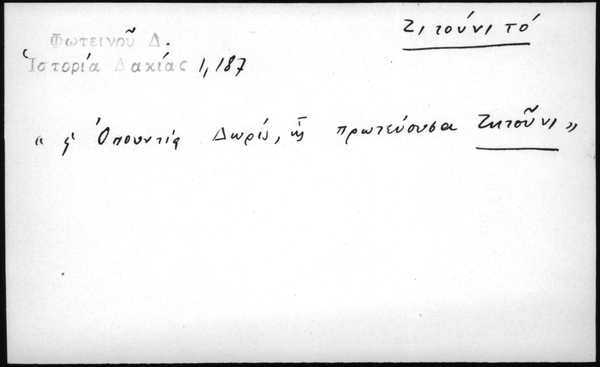 Ζιτούνι τό
Φωτεινοῦ Δ.
Ἱστορία Δακίας 1,187
« ἡ Ὀπουντία Δωρίς, ἧς πρωτεύουσα Ζητοῦνι »